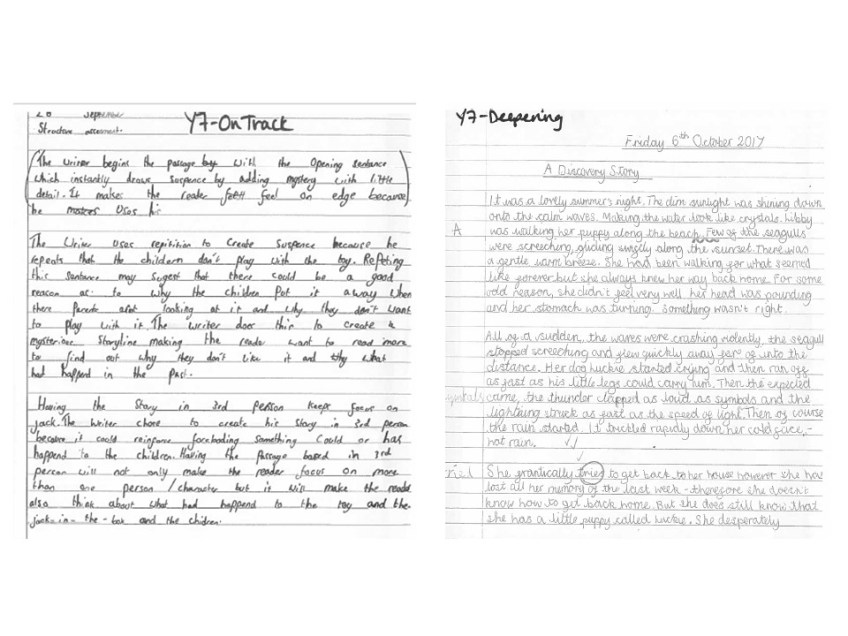 28 September
Structure assessment.
Y7-On Track
The writer begins the passage by with the Opening Sentence
which instantly draws suspence by adding mystery with little
detail. It makes the reader feel on edge because
he uses his
The Writer uses repitition to create Suspence because he
repeats that the childern don't play with the toy. Repeting
this sentance may sugest that there could be a good
reason as to why the children Put it away when
there Parents arnt looking at it and why they don't want
to play with it. The writer does this to create a
mysterious Storyline making the reader want to read more
to find out why they don't like it and what
had happend in the past.
Having the Story in 3rd Person keeps focus on
jack. The writer chose to create his story in 3rd person
because it could reinforce foreboding Something Could or has
happend to the children. Having the Passage based in 3rd
person will not only make the reader focus on more
than one person / character but it will make the reader
also think about what had happend to the toy and the
jack-in-the-box and the children.
Y7-Deepening
Friday 6th October 2017
A Discovery Story
It was a lovely summer's night. The dim sunlight was shining down
onto the calm waves. Making the water look like crystals. Libby
A was walking her puppy along the beach. Few of the seagulls
were screeching, gliding along the sunset. There was
a gentle warm breeze. She had been walking for what seemed
like forever but she always knew her way back home. For some
odd reason, she didn't feel very well her head was pounding
and her stomach was turning. Something wasn't right.
All of a sudden, the waves were crushing violently, the seagull
stopped screeching and flew quickly away far of into the
distance. Her dog luckie started crying and then ran off
as fast as his little legs could carry him. Then the expected
cymbals came, the thunder clapped as loud as symbols and the
lightning struck as fast as the speed of light. Then of course
the rain started. It trickled rapidly down her cold face, -
hot rain.
She frantically tried to get back to her house however she has
lost all her memory of the last week - therefore she doesn't
know how to get back home. But she does still know that
she has a little puppy called luckie. She desperately